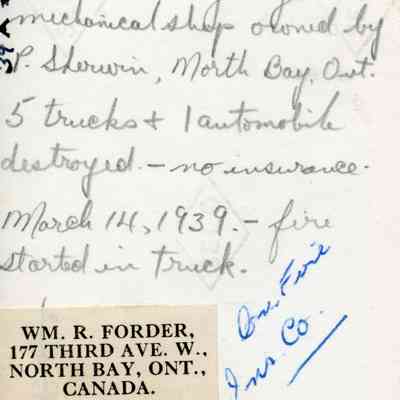 mechanical shop owned by
P. Sherwin, North Bay, Ont.
5 trucks & 1 automobile
destroyed. – no insurance.
March 14, 1939. – fire
started in truck.
On. Fire
Ins. Co.
WM. R. FORDER,
177 THIRD AVE. W.,
NORTH BAY, ONT.,
CANADA.